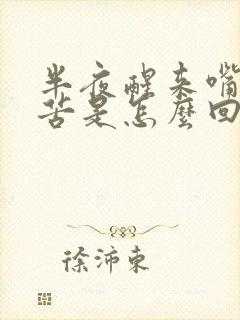 半夜醒来嘴
苦是怎麼回
徐沛東